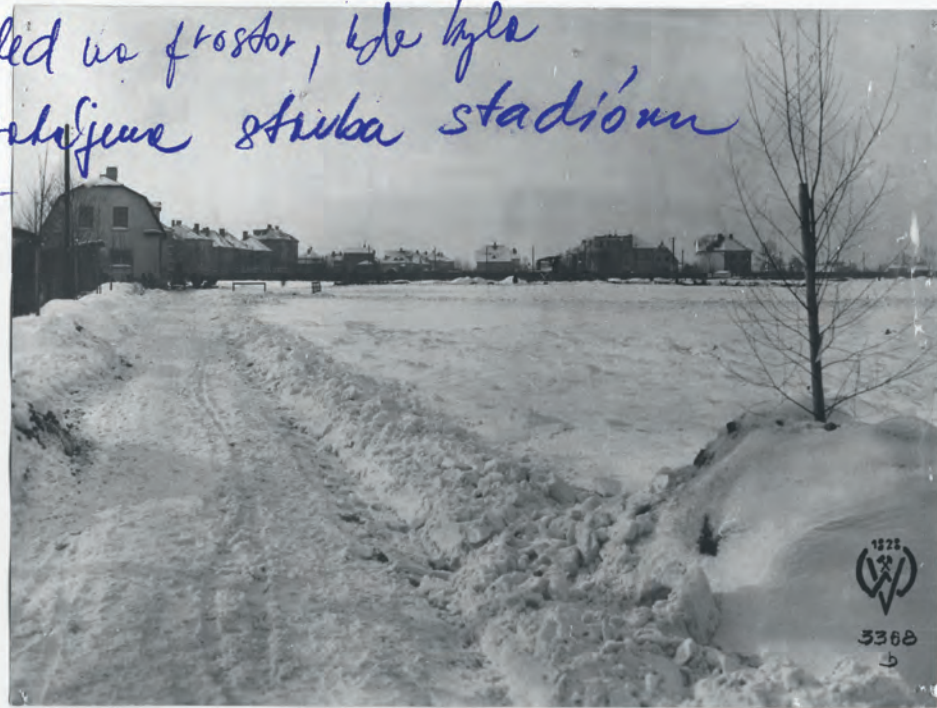 led na prostor, kde byla
stavba stadiónu
1828
3368
b